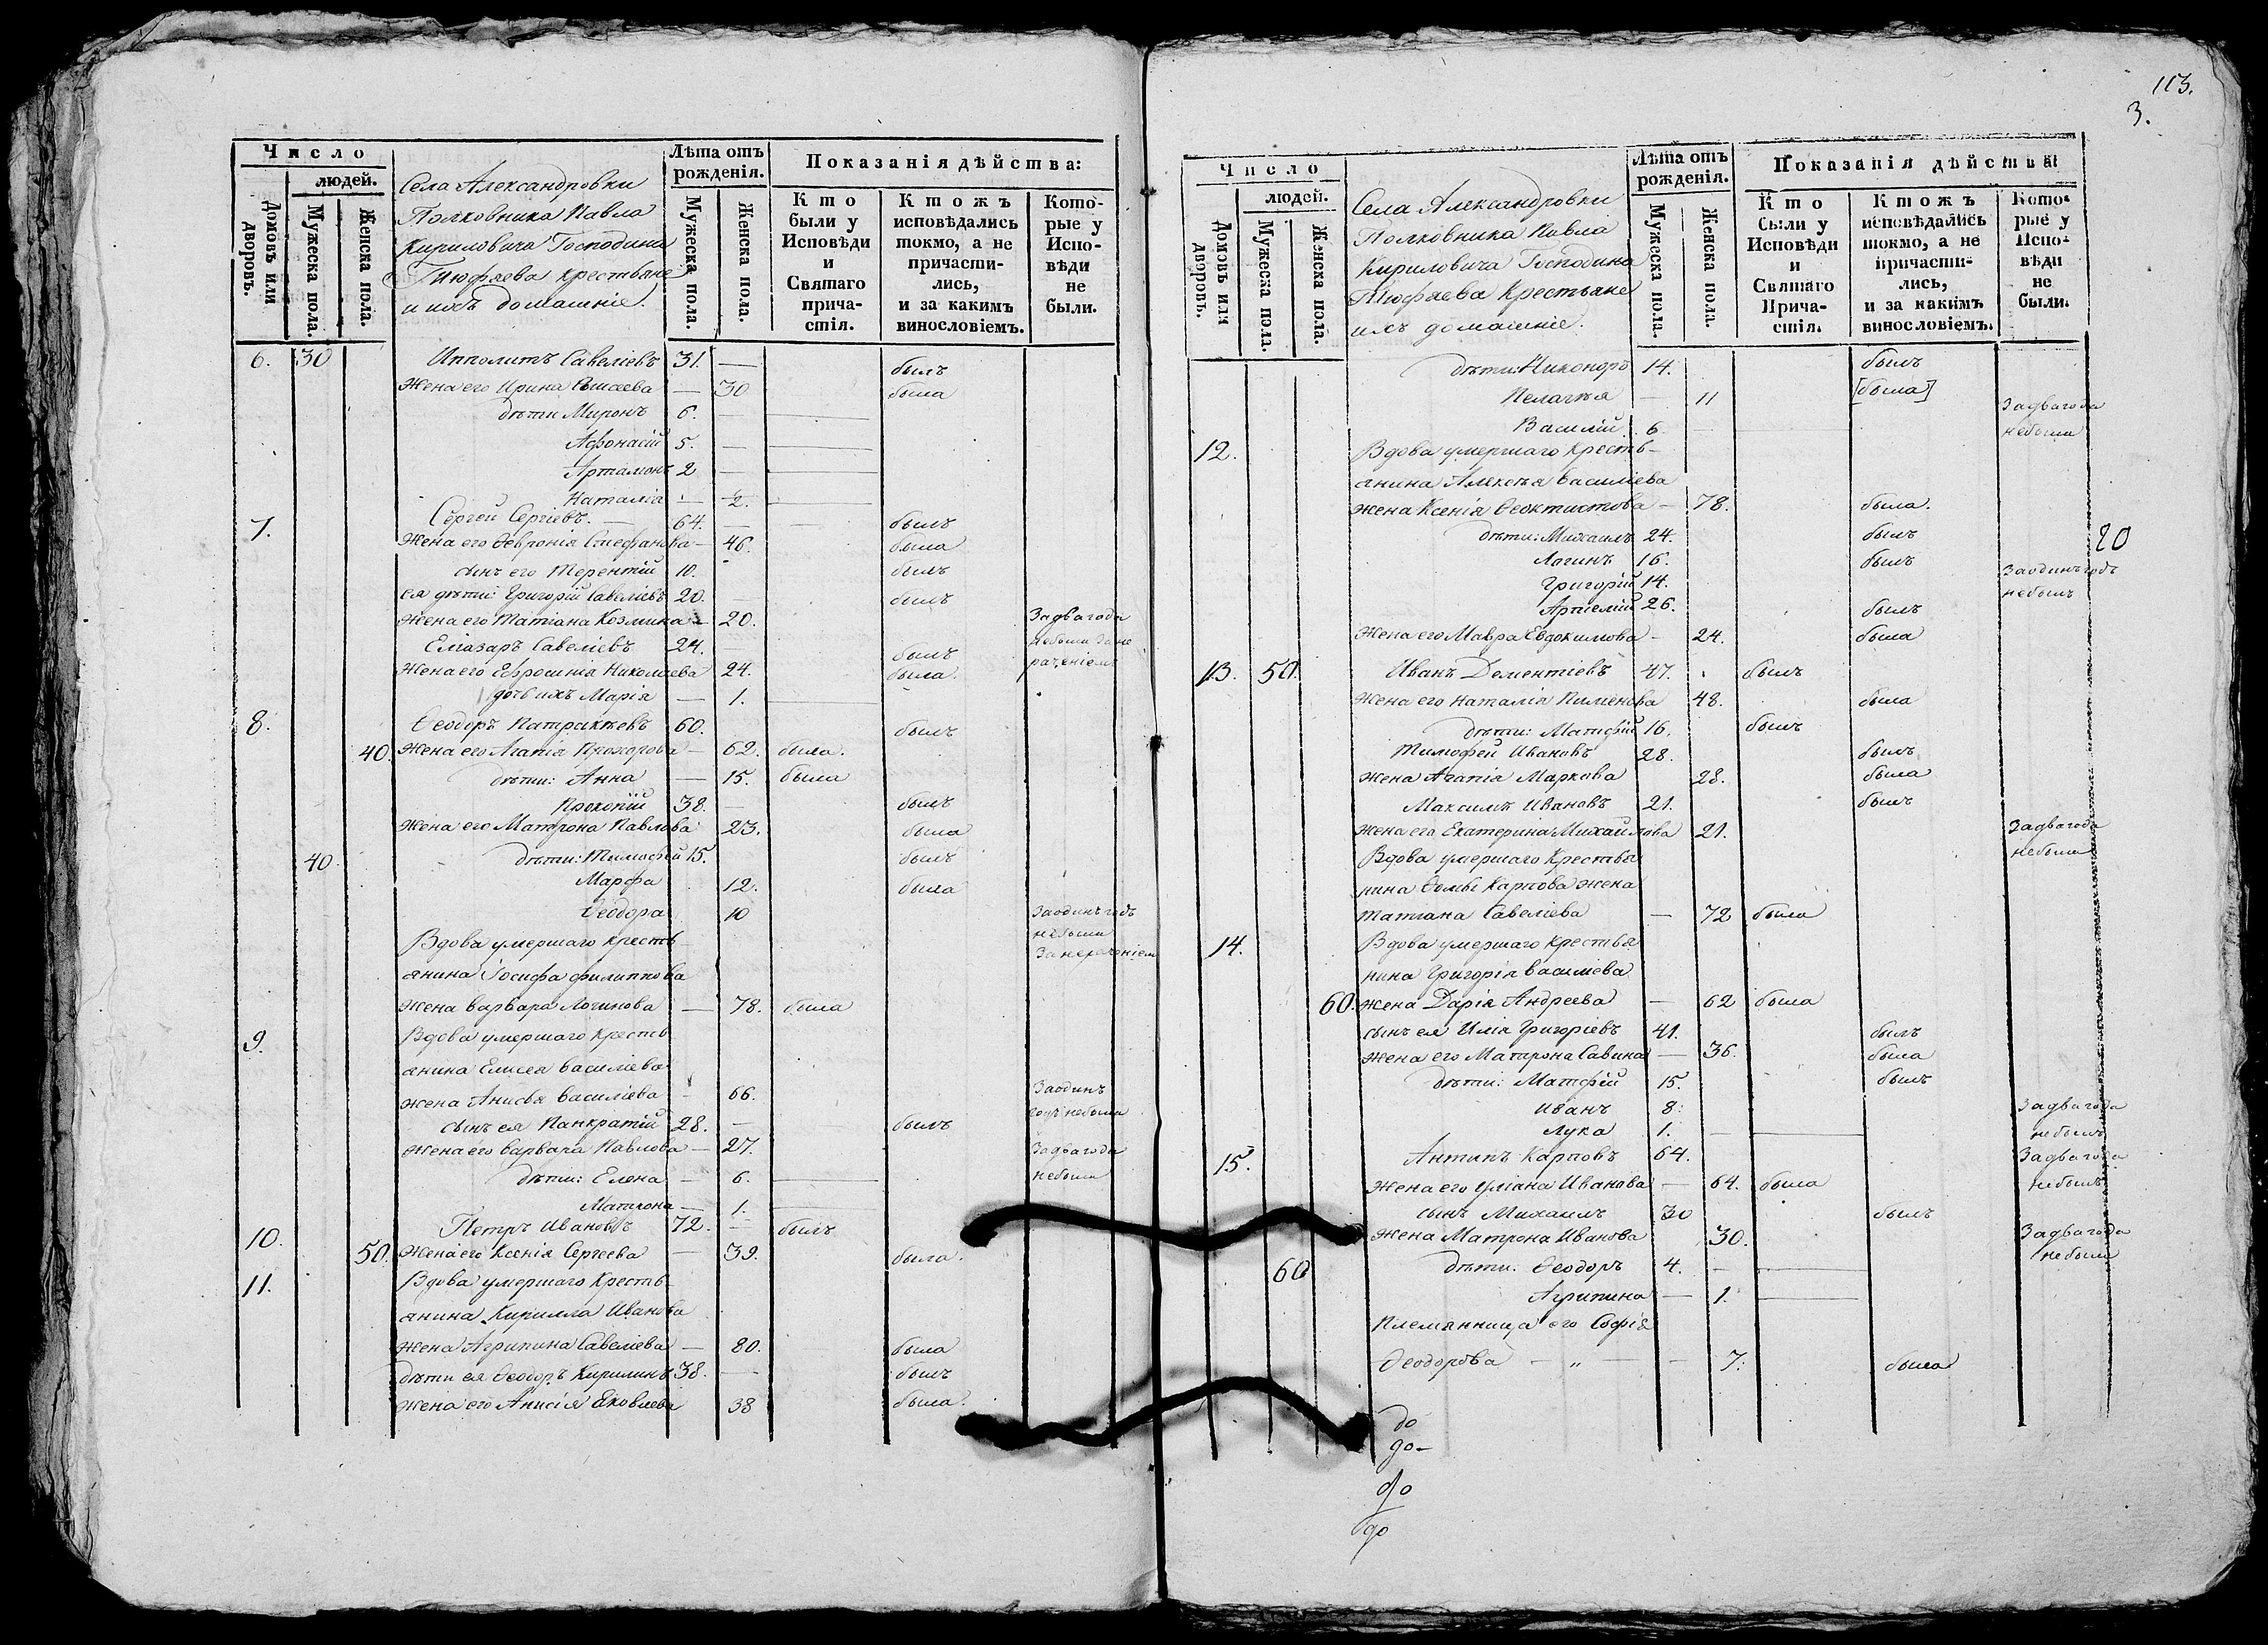 Число
людей.
Домовъ или дворовъ.
Мужеска пола.
Женска пола.
Села Александровки
Полковника Павла
Кириловича Господина
Тюфяева крестьяне
и ихъ домашніе.
Лѣта отъ рожденія.
Мужеска пола.
Женска пола.
Показанія дѣйства:
Кто были у Исповѣди и Святаго прича-стія.
Ктожъ исповѣдались токмо, а не причасти-лись, и за какимъ винословіемъ.
Кото-рые у Испо-вѣди не были.
6. 30 Ипполитъ Савеліевъ 31. — былъ
Жена его Ирина — 30 была
дѣти Миронъ 6. —
Афонасій 5. —
Артамонъ 2 —
Наталіа — ½.
7. Сергей Сергіевъ. — 64. — былъ
Жена его Февронія Стефанова — 46. была
сынъ его Терентій 10. былъ
ея дѣти: Григорій Савеліевъ 20. — былъ
Жена его Татіана Козмина — 20. За два года
Еліазаръ Савеліевъ 24. былъ небыли за не
Жена его Ефросинія Николаева 24. была. раченіемъ
дочь ихъ Марія — 1.
8. Ѳеодоръ Патракѣевъ 60. былъ
40. Жена его Агапія Прохорова — 62. была.
дѣти: Анна — 15. была
Прокопій 38. — былъ
Жена его Матрона Павлова 23. была
40. дѣти: Тимофей 15. былъ
Марфа 12. была
Ѳеодора 10 За одинъ годъ
небыли
Вдова умершаго кресть- За нераченіем
янина Іосифа Филиппова
жена Варвара Логинова — 78. была
9. Вдова умершаго кресть
янина Елисея Василіева
жена Анисья Василіева — 66. За одинъ
годъ небыла
сынъ ея Панкратій 28. — былъ
Жена его Варвара Павлова — 27. За два года
дѣти: Елена — 6. небыли
Матрона — 1.
10. Петръ Ивановъ 72. — былъ
50. Жена его Ксенія Сергеева — 39. была.
11. Вдова умершаго кресть-
янина Кирилла Иванова
жена Агрипина Савеліева — 80. была
дѣти ея Ѳеодоръ Кирилинъ 38. — былъ
Жена его Анисія Яковлева 38 была.
113.
3.
Число
людей.
Домовъ или дворовъ.
Мужеска пола.
Женска пола.
Села Александровки
Полковника Павла
Кириловича Господина
Тюфяева Крестьане
ихъ домашніе.
Лѣта отъ рожденія.
Мужеска пола.
Женска пола.
Показанія дѣйства
Кто были у Исповѣди и Святаго Прича-стія.
Ктожъ исповѣдались токмо, а не причасти-лись, и за какимъ винословіемъ.
Кото-рые у Испо-вѣди не были.
дѣти: Никоноръ 14. былъ
Пелагѣя — 11 [была]
За два года
Василій 6. — небыли
12. Вдова умершаго кресть-
янина Алексѣя Василіева
жена Ксенія Ѳеоктистова — 78. была.
дѣти: Михаилъ 24. былъ
20
Логинъ 16. былъ
Григорій 14. За одинъ годъ
небылъ
Артемій 26. былъ
Жена его Мавра Евдокимова — 24. была
13. 50. Иванъ Дементіевъ 47. былъ
Жена его Наталія Пименова 48. была
дѣти: Матфій 16. былъ
Тимофей Ивановъ 28. былъ
жена Агапія Маркова 28. была
Максимъ Ивановъ 21. былъ
Жена его Екатерина Михайлова 21. За два года
небыла
Вдова умершаго Крестья
нина Ѳомы Карпова жена
Татіана Савеліева — 72 была
14. Вдова умершаго Крестья
нина Григорія Василіева
60. жена Дарія Андреева — 62 была
сынъ ея Илія Григоріевъ 41. былъ
Жена его Матрона Савина — 36. была
дѣти: Матфій 15. былъ
Иванъ 8. За два года
Лука 1. — небылъ
15. Антипъ Карповъ 64. За два года
Жена его Уліана Иванова — 64. была небылъ
сынъ Михаилъ 30 былъ
Жена Матрона Иванова 30. За два года
небыла
60 дѣти: Ѳеодоръ 4. —
Агрипина — 1.
Племянница его Софія
Ѳеодорова — „ — — 7. была
до
до-
до
до